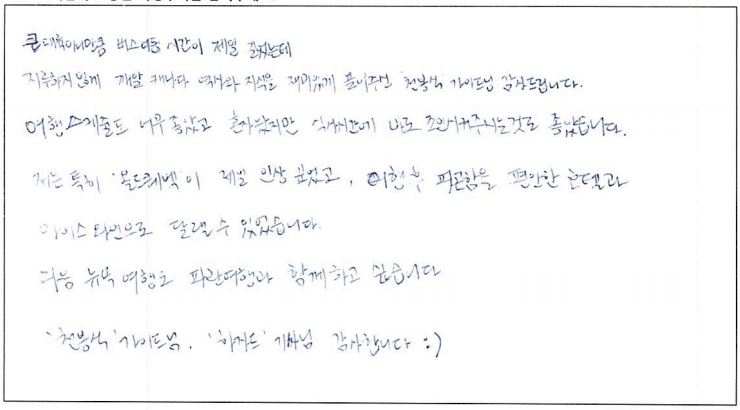 큰 대륙이니만큼 버스이동 시간이 제일 길었는데
지루하지 않게 깨알 캐나다 역사와 지식을 재미있게 풀어주신 '천봉석' 가이드님 감사드립니다.
여행 스케줄도 너무 좋았고 혼자왔지만 식사시간에 바로 조인시켜주시는것도 좋았습니다.
저는 특히 '몰드퀘벡'이 제일 인상 깊었고, 여행 후 피곤함을 편안한 호텔과
아이스 와인으로 달랠 수 있었습니다.
다음 뉴욕 여행도 파란여행과 함께하고 싶습니다
'천봉석' 가이드님. '하자드' 기사님 감사합니다 :)